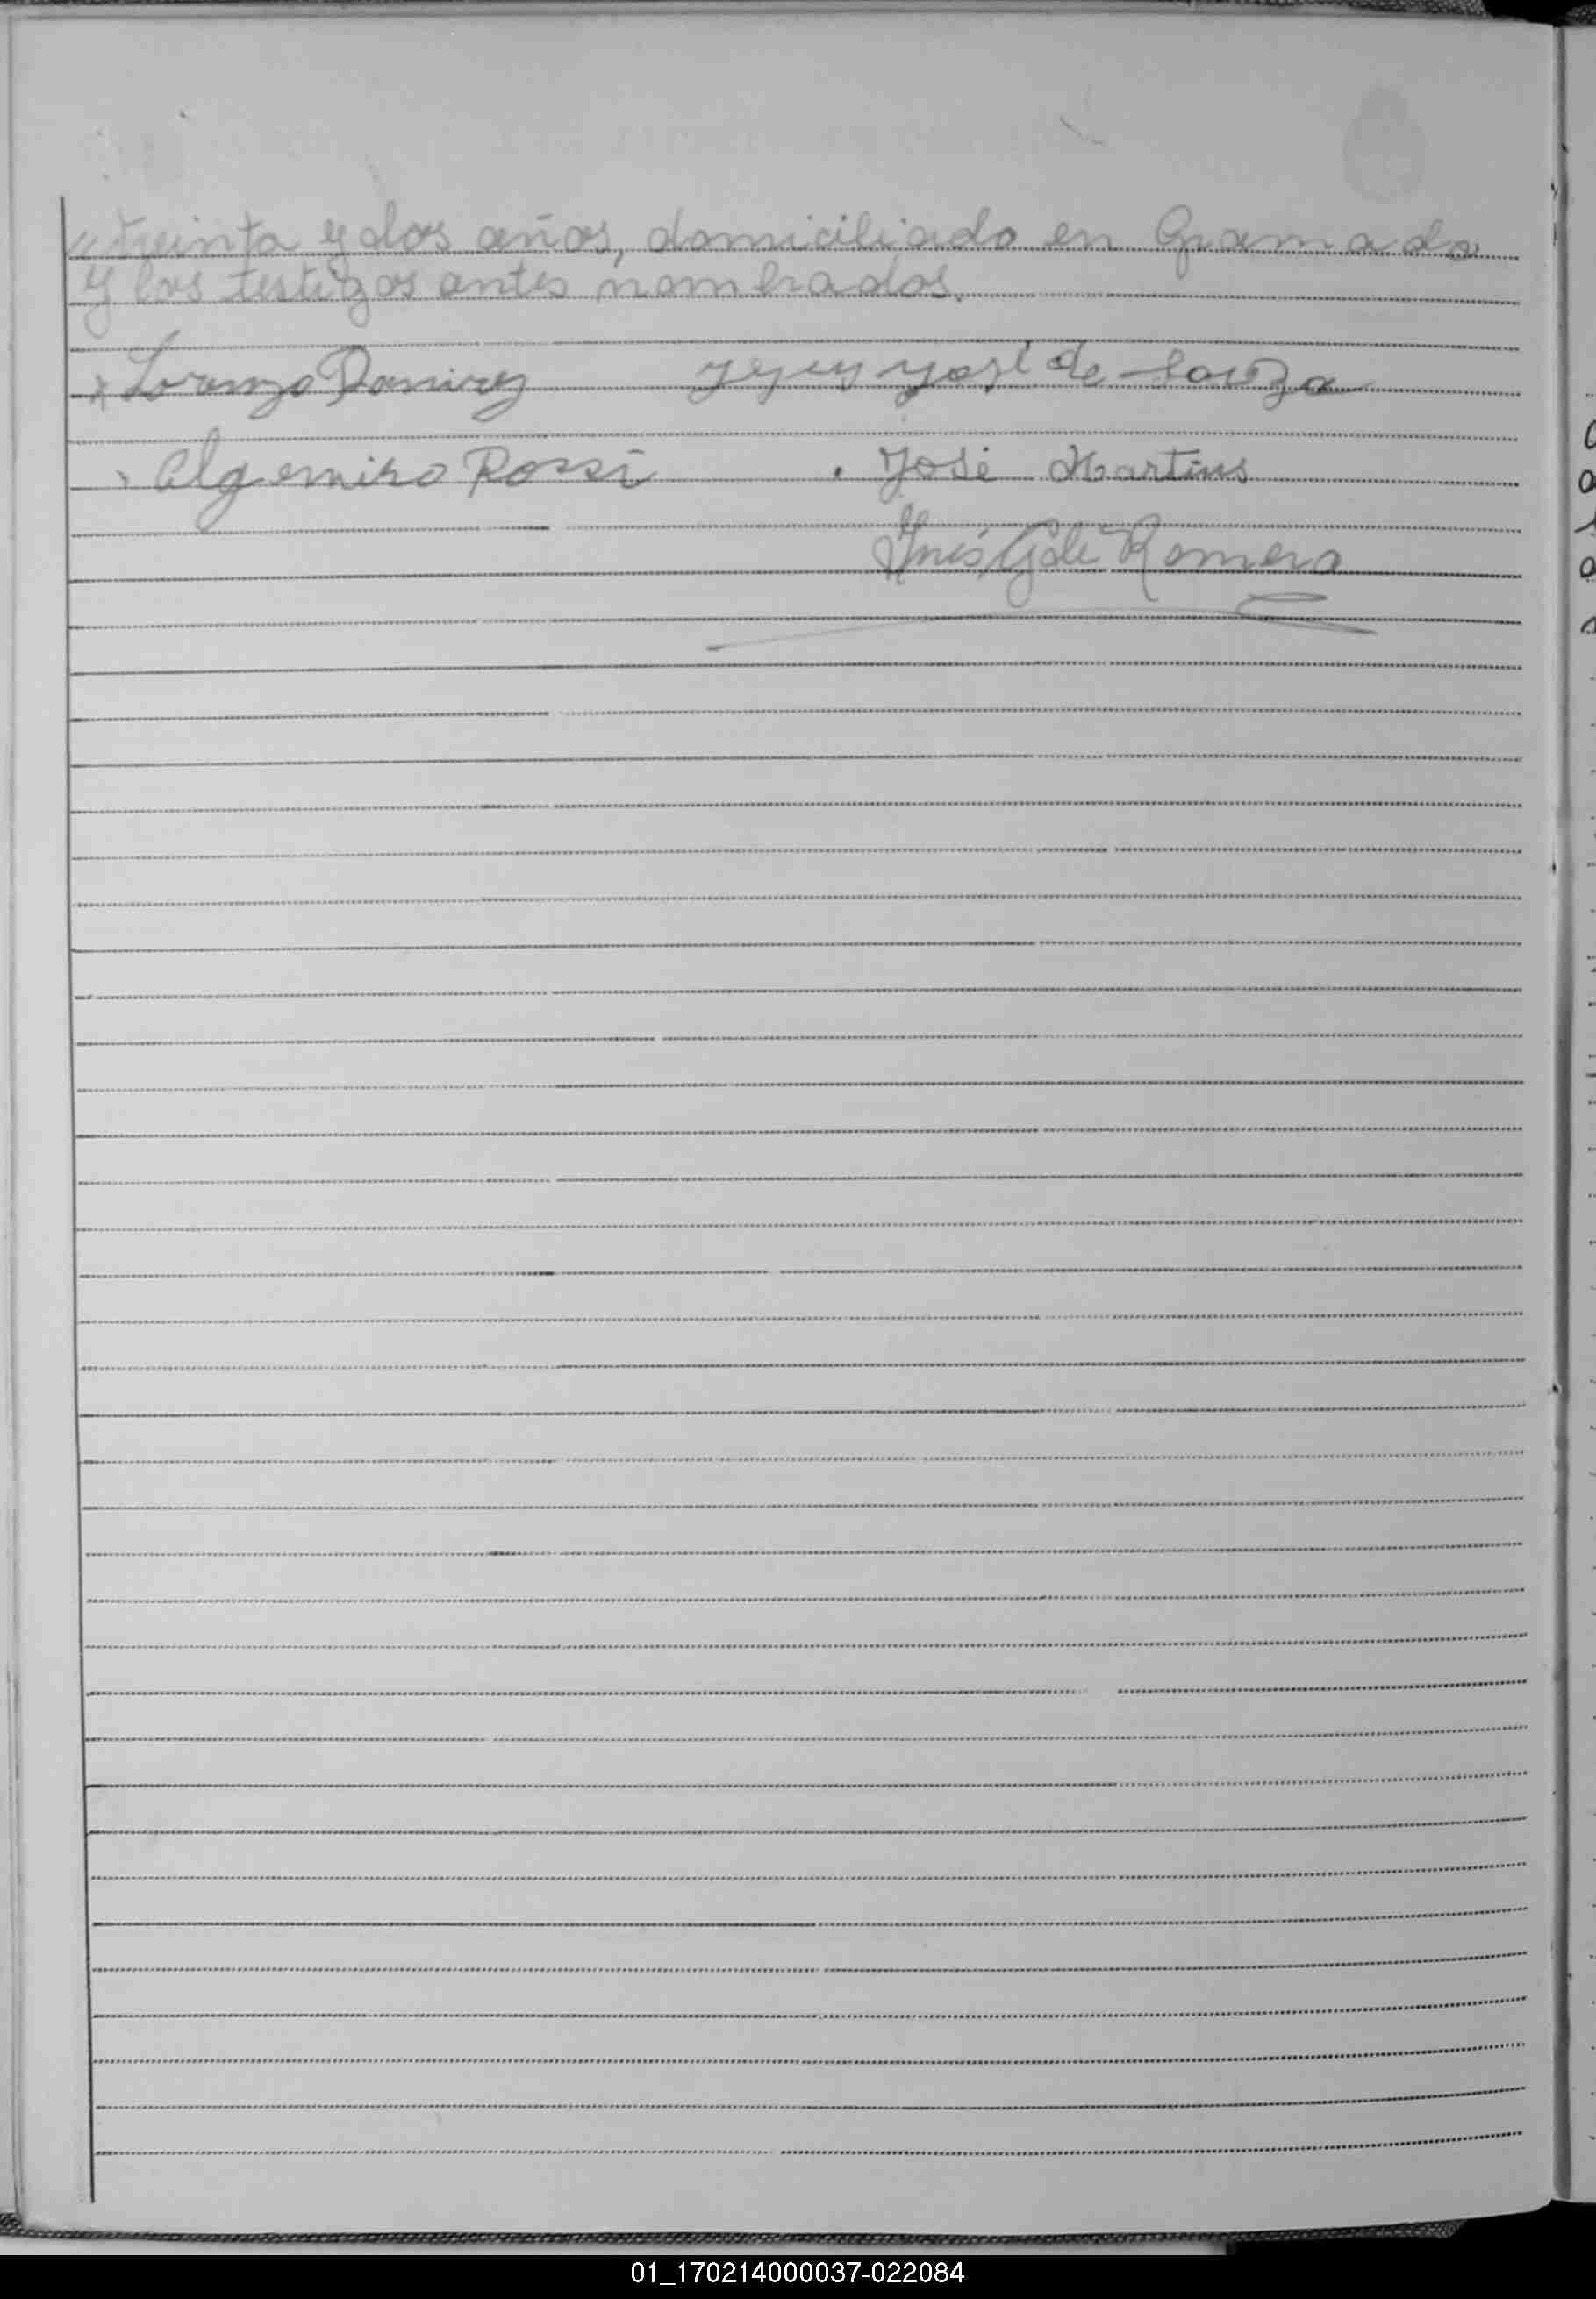 "treinta y dos años, domiciliado en Gramado
y los testigos antes nombrados.
x Lorenzo Ramirez Jesus José de Souza
Algemiro Rossi José Martins
Inés G. de Romero
01_170214000037-022084